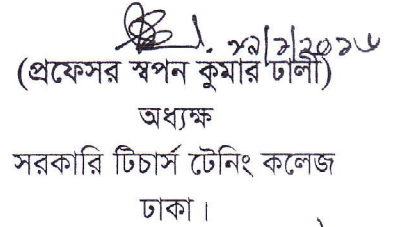 (প্রফেসর স্বপন কুমার ঢালী)
অধ্যক্ষ
সরকারি টিচার্স টেনিং কলেজ
ঢাকা।